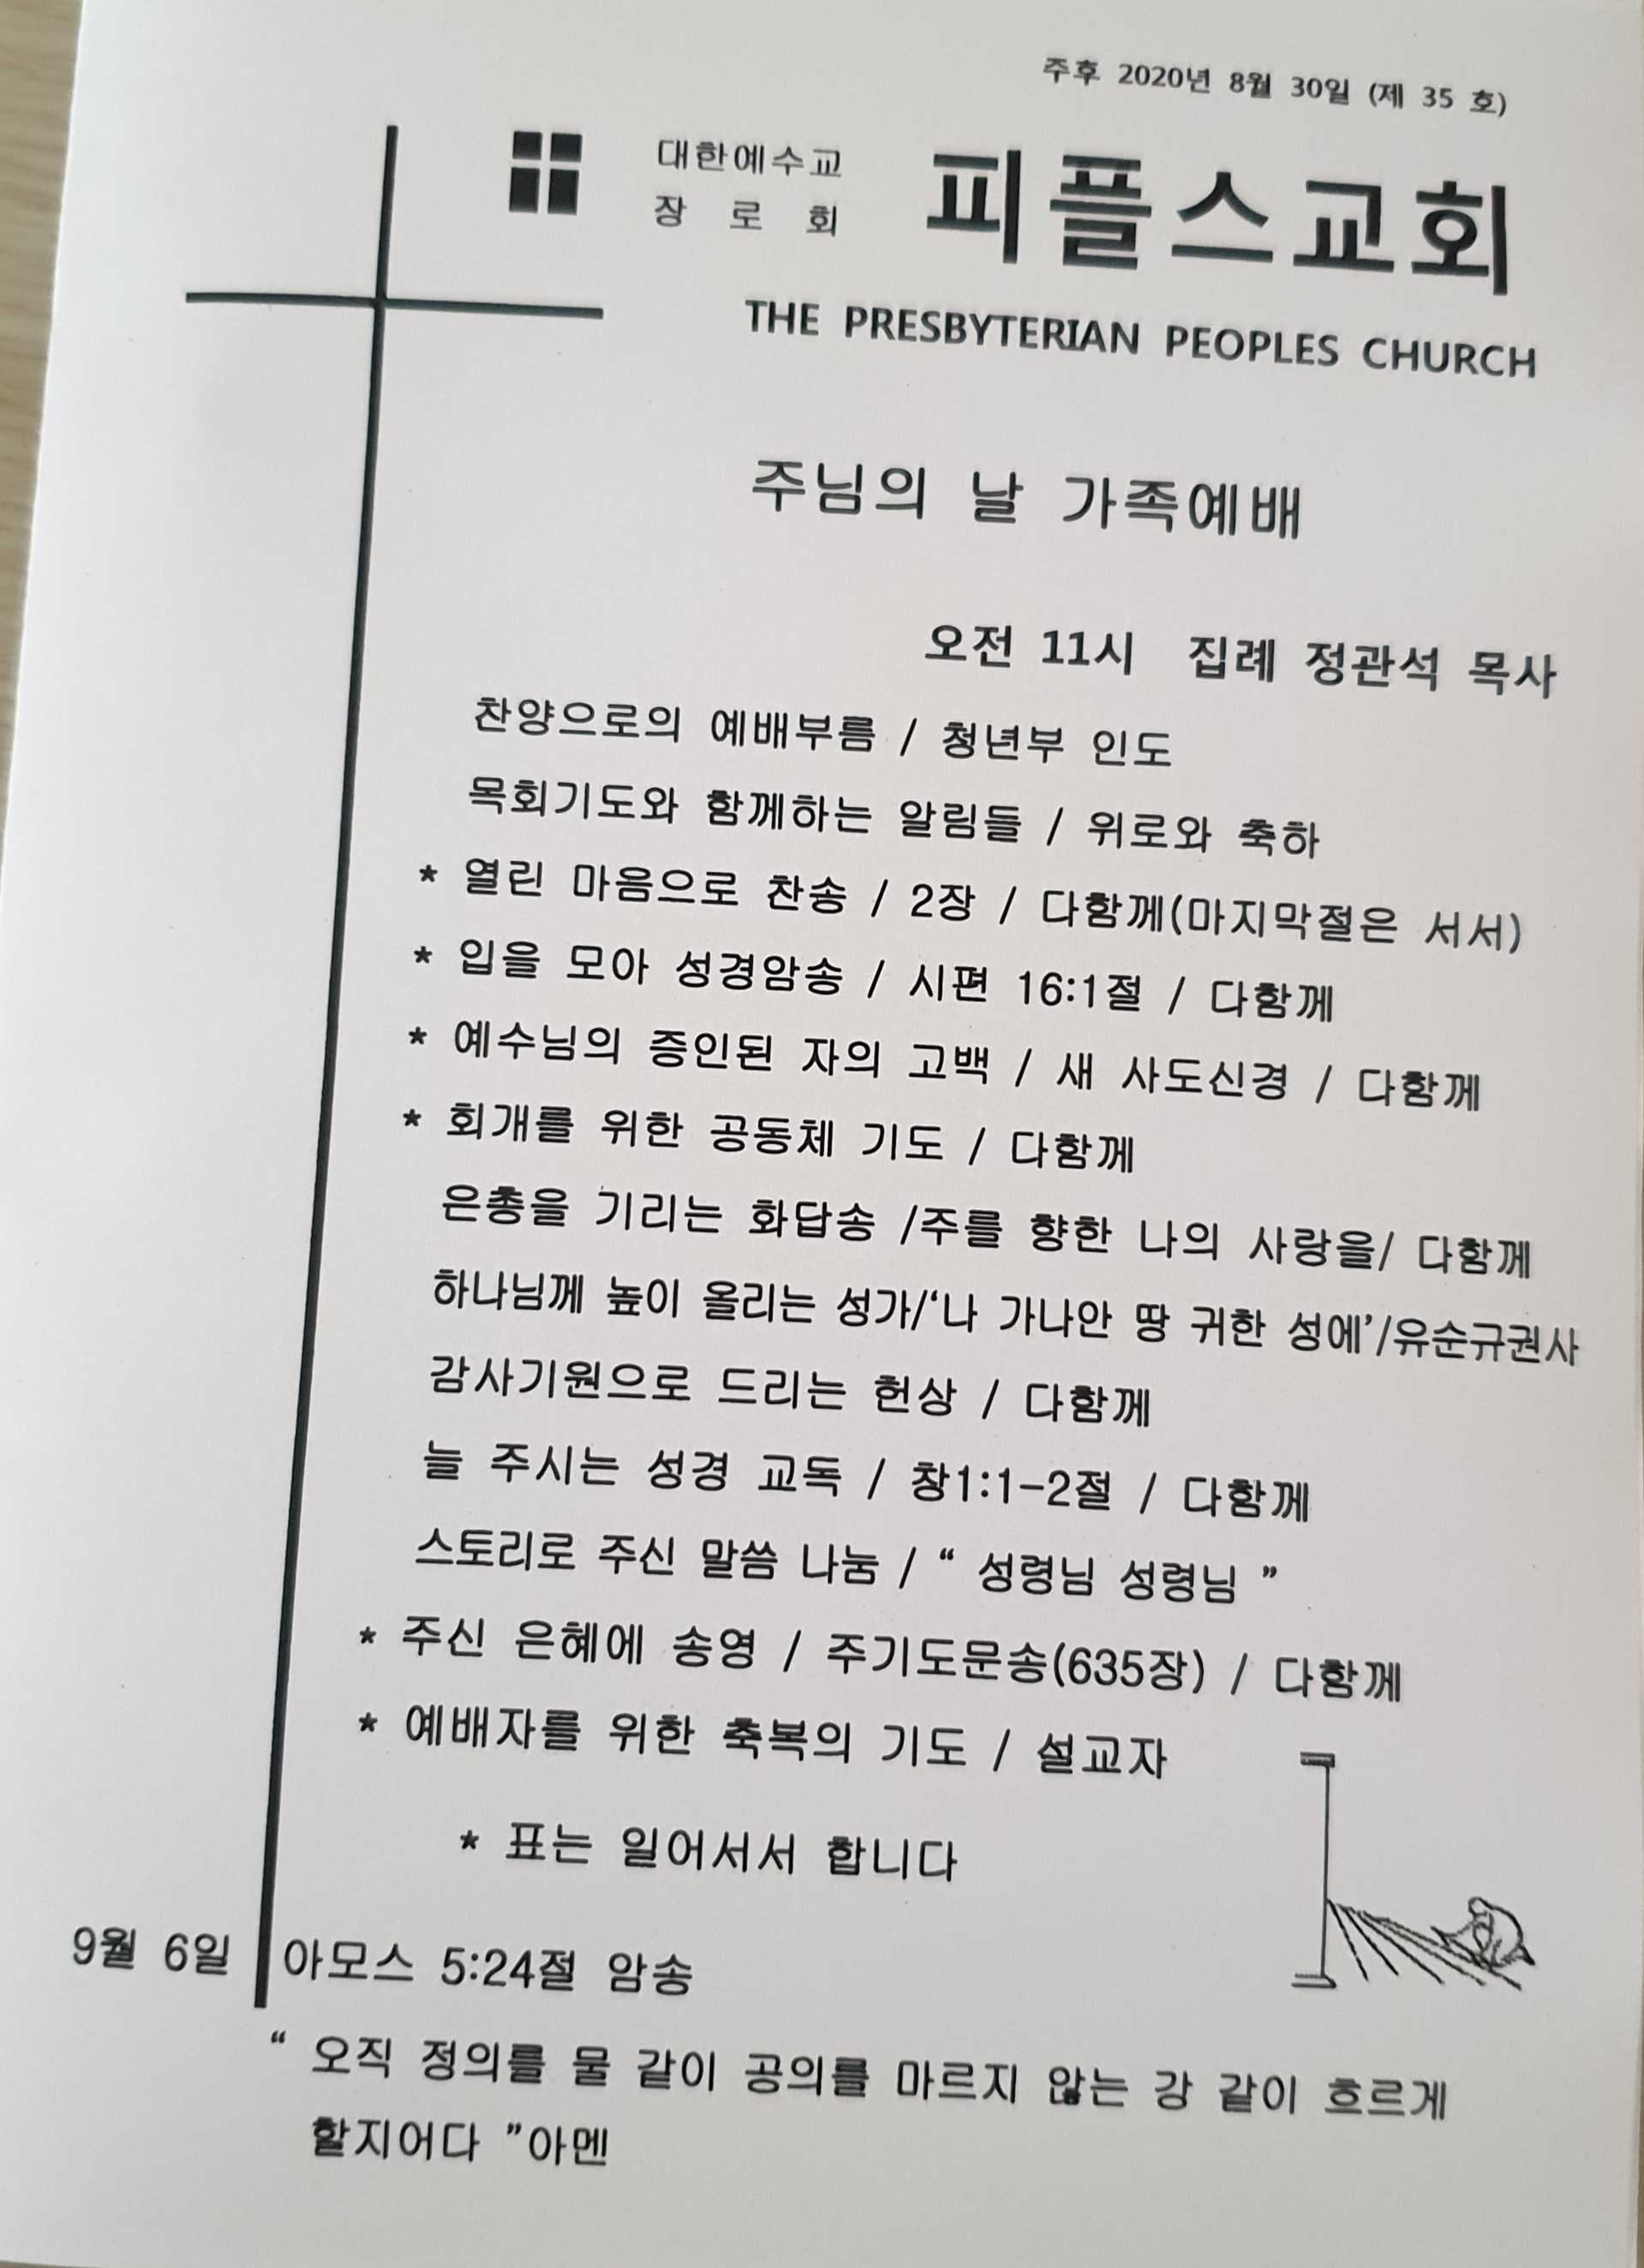 주후 2020년 8월 30일 (제 35 호)
대한예수교
장 로 회
피플스교회
THE PRESBYTERIAN PEOPLES CHURCH
주님의 날 가족예배
오전 11시 집례 정관석 목사
찬양으로의 예배부름 / 청년부 인도
목회기도와 함께하는 알림들 / 위로와 축하
* 열린 마음으로 찬송 / 2장 / 다함께(마지막절은 서서)
* 입을 모아 성경암송 / 시편 16:1절 / 다함께
* 예수님의 증인된 자의 고백 / 새 사도신경 / 다함께
* 회개를 위한 공동체 기도 / 다함께
은총을 기리는 화답송 /주를 향한 나의 사랑을/ 다함께
하나님께 높이 올리는 성가/‘나 가나안 땅 귀한 성에’/유순규권사
감사기원으로 드리는 헌상 / 다함께
늘 주시는 성경 교독 / 창1:1-2절 / 다함께
스토리로 주신 말씀 나눔 / “ 성령님 성령님 ”
* 주신 은혜에 송영 / 주기도문송(635장) / 다함께
* 예배자를 위한 축복의 기도 / 설교자
* 표는 일어서서 합니다
9월 6일 아모스 5:24절 암송
“ 오직 정의를 물 같이 공의를 마르지 않는 강 같이 흐르게
할지어다 ”아멘